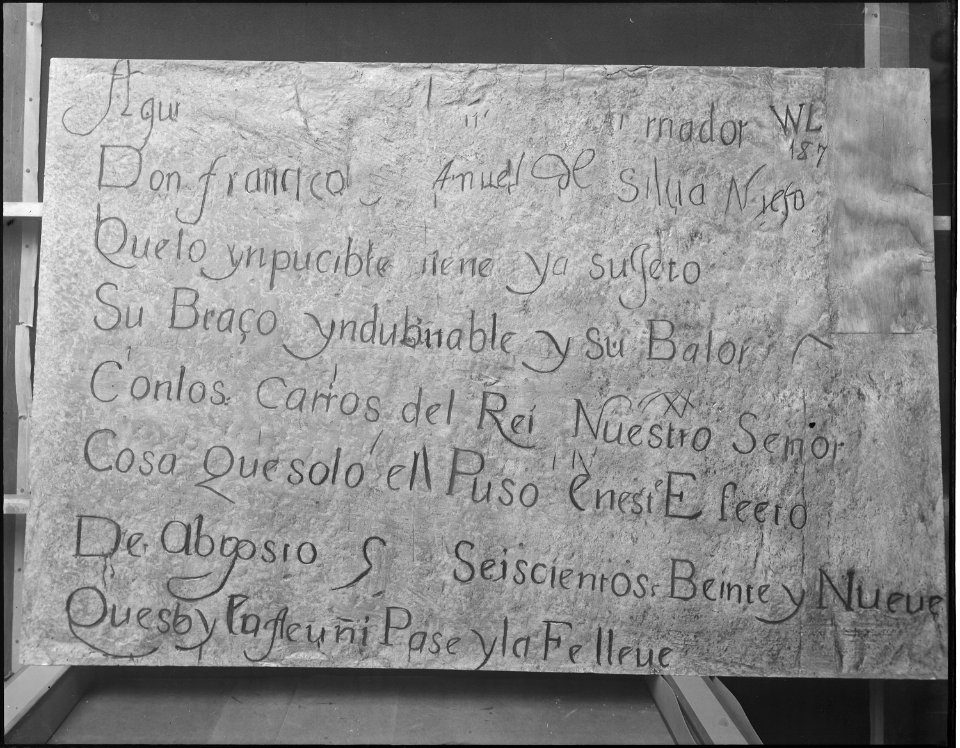 Aqui rnador WL
187
Don francisco Anuel De Silua Nieto
Quelo ynpucible tiene ya sujeto
Su Braço yndubitable y su Balor
Conlos Carros del Rei Nuestro Señor
Cosa Quesolo ell Puso enesteEfecto
De Abgosto Seiscientos Beinte y Nueve
Quesbyen a Cuñi Pase y la Fe lleve